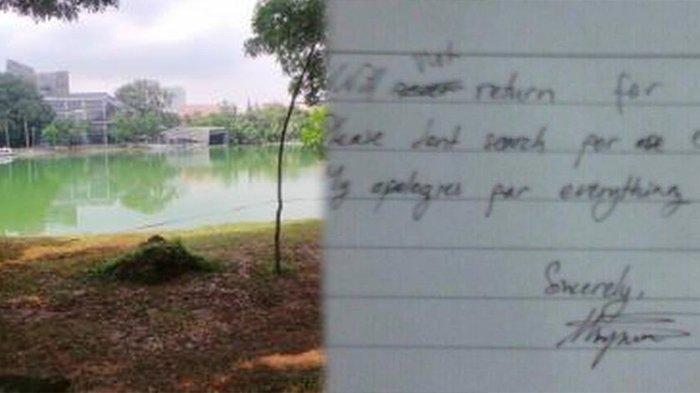 not
Will return for
Please dont search for me
My apologies for everything
Sincerely,